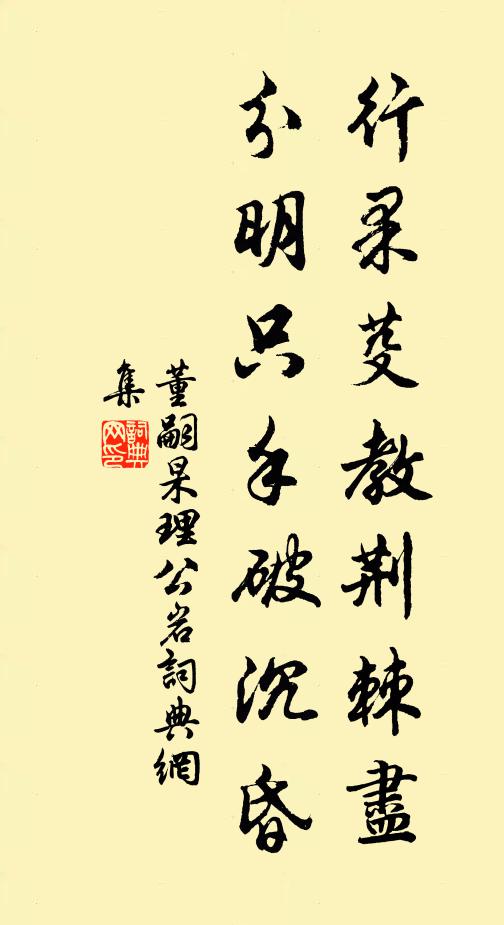 行果芟教荆棘盡
分明只手破沉昏
董嗣杲理公岩詞典網
集
詞典
网印